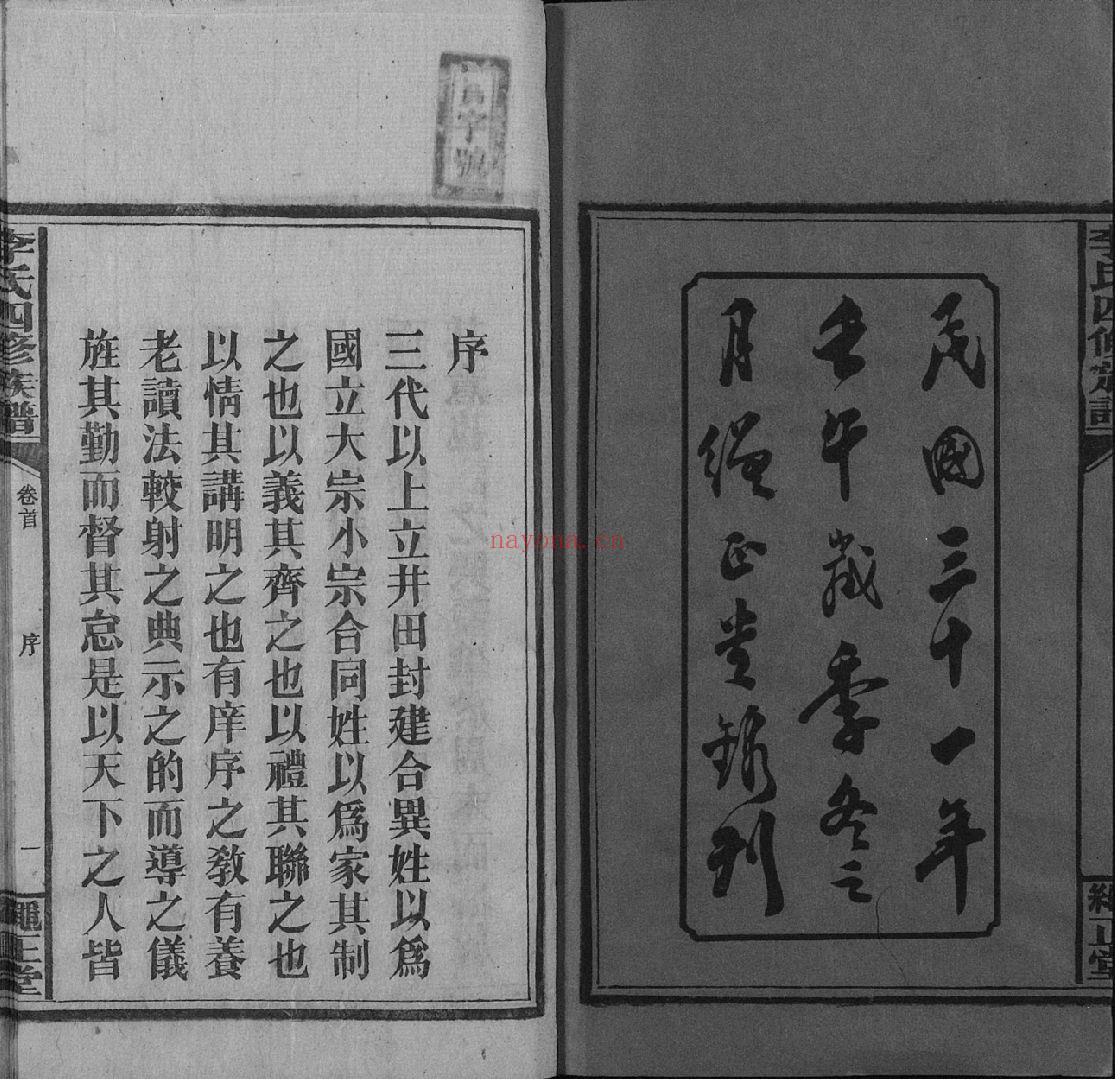 李氏四修族譜
繩正堂
民國三十一年
壬午歲季冬之
月繩正堂錦刊
字號
序
三代以上立井田封建合異姓以爲
國立大宗小宗合同姓以爲家其制
之也以義其齊之也以禮其聯之也
以情其講明之也有庠序之敎有養
老讀法較射之典示之的而導之儀
旌其勤而督其怠是以天下之人皆
李氏四修族譜
卷首
序
一
繩正堂
nayona.cn